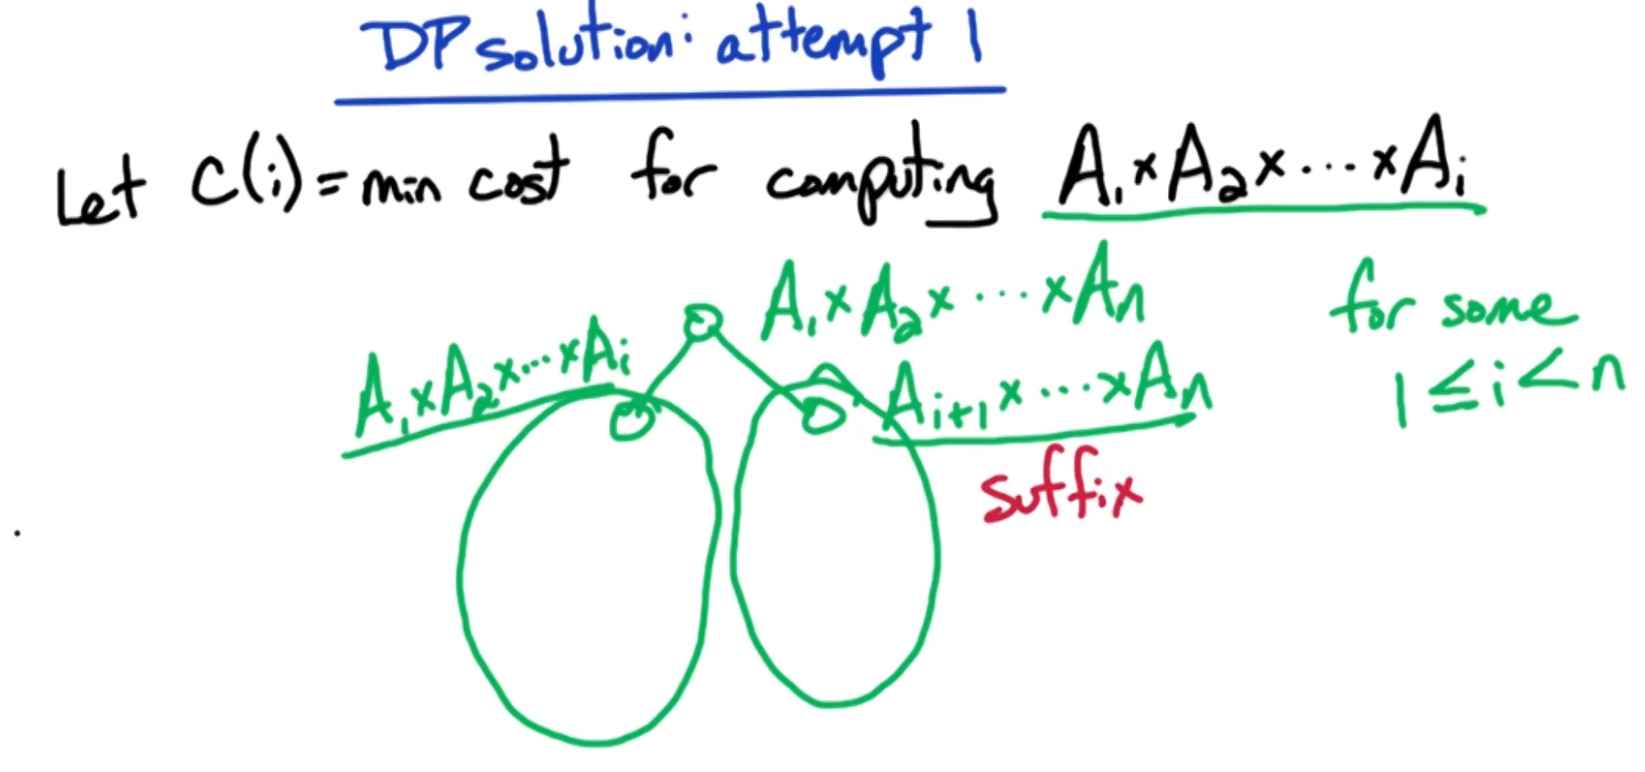 DP solution: attempt 1
Let C(i) = min cost for computing A₁ × A₂ × ⋯ × Aᵢ
A₁ × A₂ × ⋯ × Aₙ
for some
1 ≤ i < n
A₁ × A₂ × ⋯ × Aᵢ
Aᵢ₊₁ × ⋯ × Aₙ
suffix